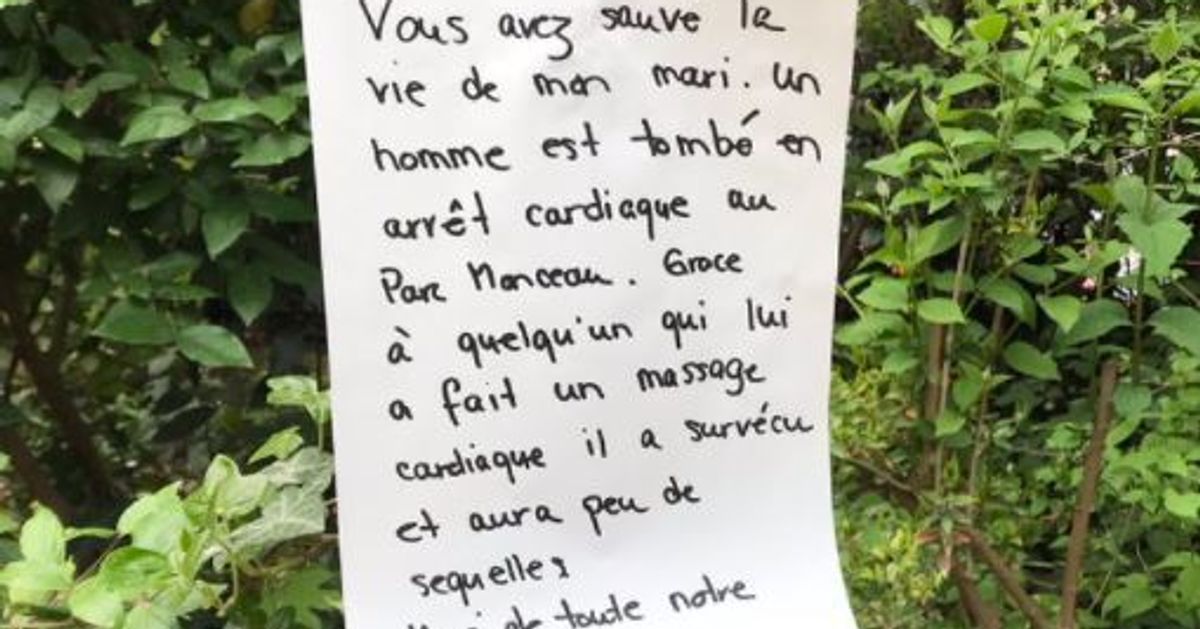 Vous avez sauve la
vie de mon mari. un
homme est tombé en
arrêt cardiaque au
Parc Monceau. Grace
à quelqu'un qui lui
a fait un massage
cardiaque il a survécu
et aura peu de
sequelles
de toute notre